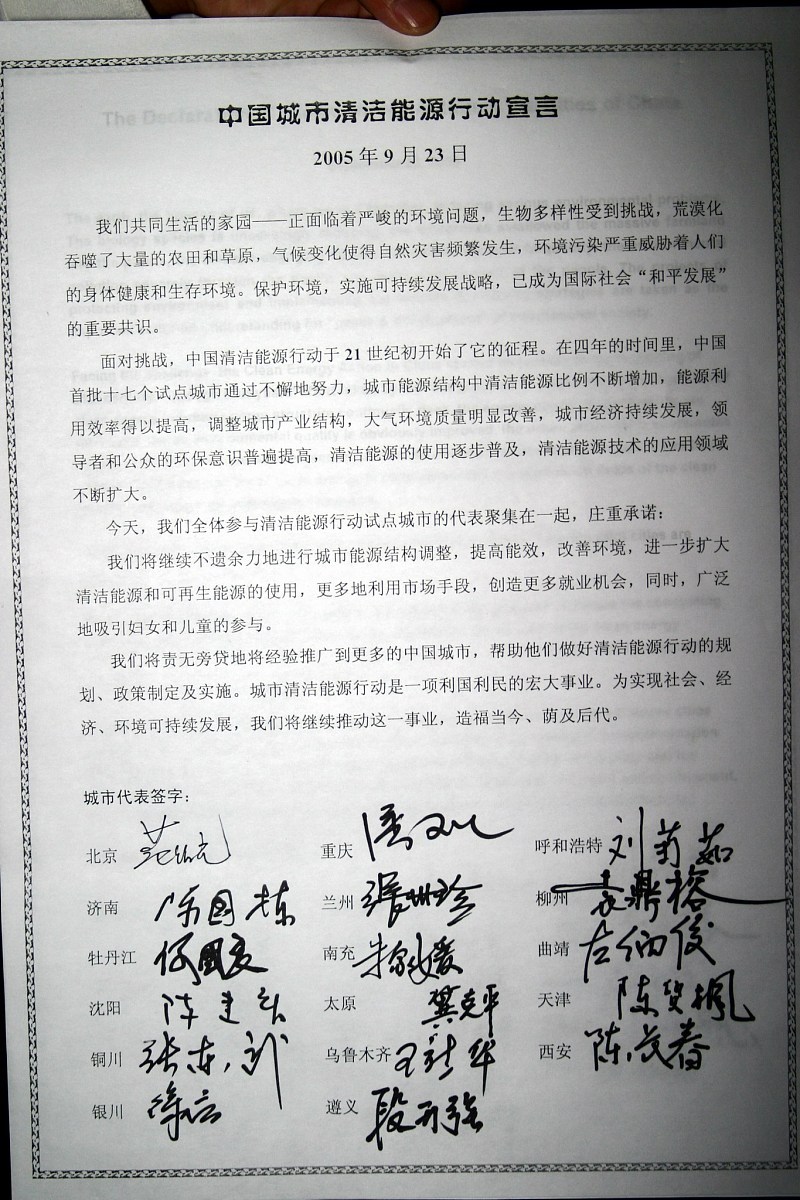 中国城市清洁能源行动宣言
2005 年 9 月 23 日
我们共同生活的家园——正面临着严峻的环境问题，生物多样性受到挑战，荒漠化
吞噬了大量的农田和草原，气候变化使得自然灾害频繁发生，环境污染严重威胁着人们
的身体健康和生存环境。保护环境，实施可持续发展战略，已成为国际社会“和平发展”
的重要共识。
面对挑战，中国清洁能源行动于 21 世纪初开始了它的征程。在四年的时间里，中国
首批十七个试点城市通过不懈地努力，城市能源结构中清洁能源比例不断增加，能源利
用效率得以提高，调整城市产业结构，大气环境质量明显改善，城市经济持续发展，领
导者和公众的环保意识普遍提高，清洁能源的使用逐步普及，清洁能源技术的应用领域
不断扩大。
今天，我们全体参与清洁能源行动试点城市的代表聚集在一起，庄重承诺：
我们将继续不遗余力地进行城市能源结构调整，提高能效，改善环境，进一步扩大
清洁能源和可再生能源的使用，更多地利用市场手段，创造更多就业机会，同时，广泛
地吸引妇女和儿童的参与。
我们将责无旁贷地将经验推广到更多的中国城市，帮助他们做好清洁能源行动的规
划、政策制定及实施。城市清洁能源行动是一项利国利民的宏大事业。为实现社会、经
济、环境可持续发展，我们将继续推动这一事业，造福当今、荫及后代。
城市代表签字：
北京 重庆 呼和浩特 刘菊茹
济南 兰州 柳州
牡丹江 南充 曲靖
沈阳 太原 龚克平 天津
铜川 乌鲁木齐 西安 陈茂春
银川 遵义 段开强